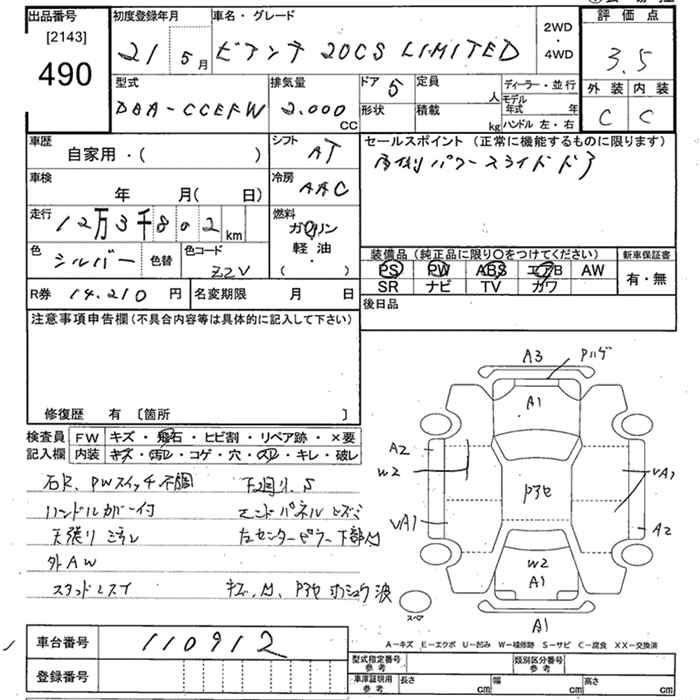 出品番号
[2143]
490
初度登録年月
21 5月
車名・グレード
ビアンテ 20CS LIMITED
2WD
・
4WD
評価点
3.5
外装 内装
C C
型式
DBA-CCEFW
排気量
2.000
CC
ドア 5
形状
定員
人
積載
kg
ディーラー・並行
モデル
年式 年
ハンドル 左・右
車歴
自家用・( )
シフト
AT
車検
年 月( 日)
冷房
AAC
走行
12万3千802km
燃料
ガソリン
軽油
( ・ )
色
シルバー
色替
色コード
22V
R券 14.210円
名変期限 月 日
セールスポイント(正常に機能するものに限ります)
両側パワースライドドア
装備品(純正品に限り〇をつけてください)
PS PW ABS エアB AW
SR ナビ TV カワ
新車保証書
有・無
後日品
注意事項申告欄(不具合内容等は具体的に記入して下さい)
修復歴 有 [箇所 ]
検査員
記入欄
FW キズ・飛石・ヒビ割・リペア跡・×要
内装 キズ・汚レ・コゲ・穴・スレ・キレ・破レ
PWスイッチ不調
ハンドルカバー付
天張り
外AW
下廻り.S
左センターピラー下部
A3
A1
A2
W2
VA1
VA1
A2
W2
A1
A1
スペア
A-キズ E-エクボ U-凹み W-補修跡 S-サビ C-腐食 XX-交換済
車台番号
110912
登録番号
型式指定番号
参考
類別区分番号
参考
車庫証明用
参考
長さ cm
幅 cm
高さ cm